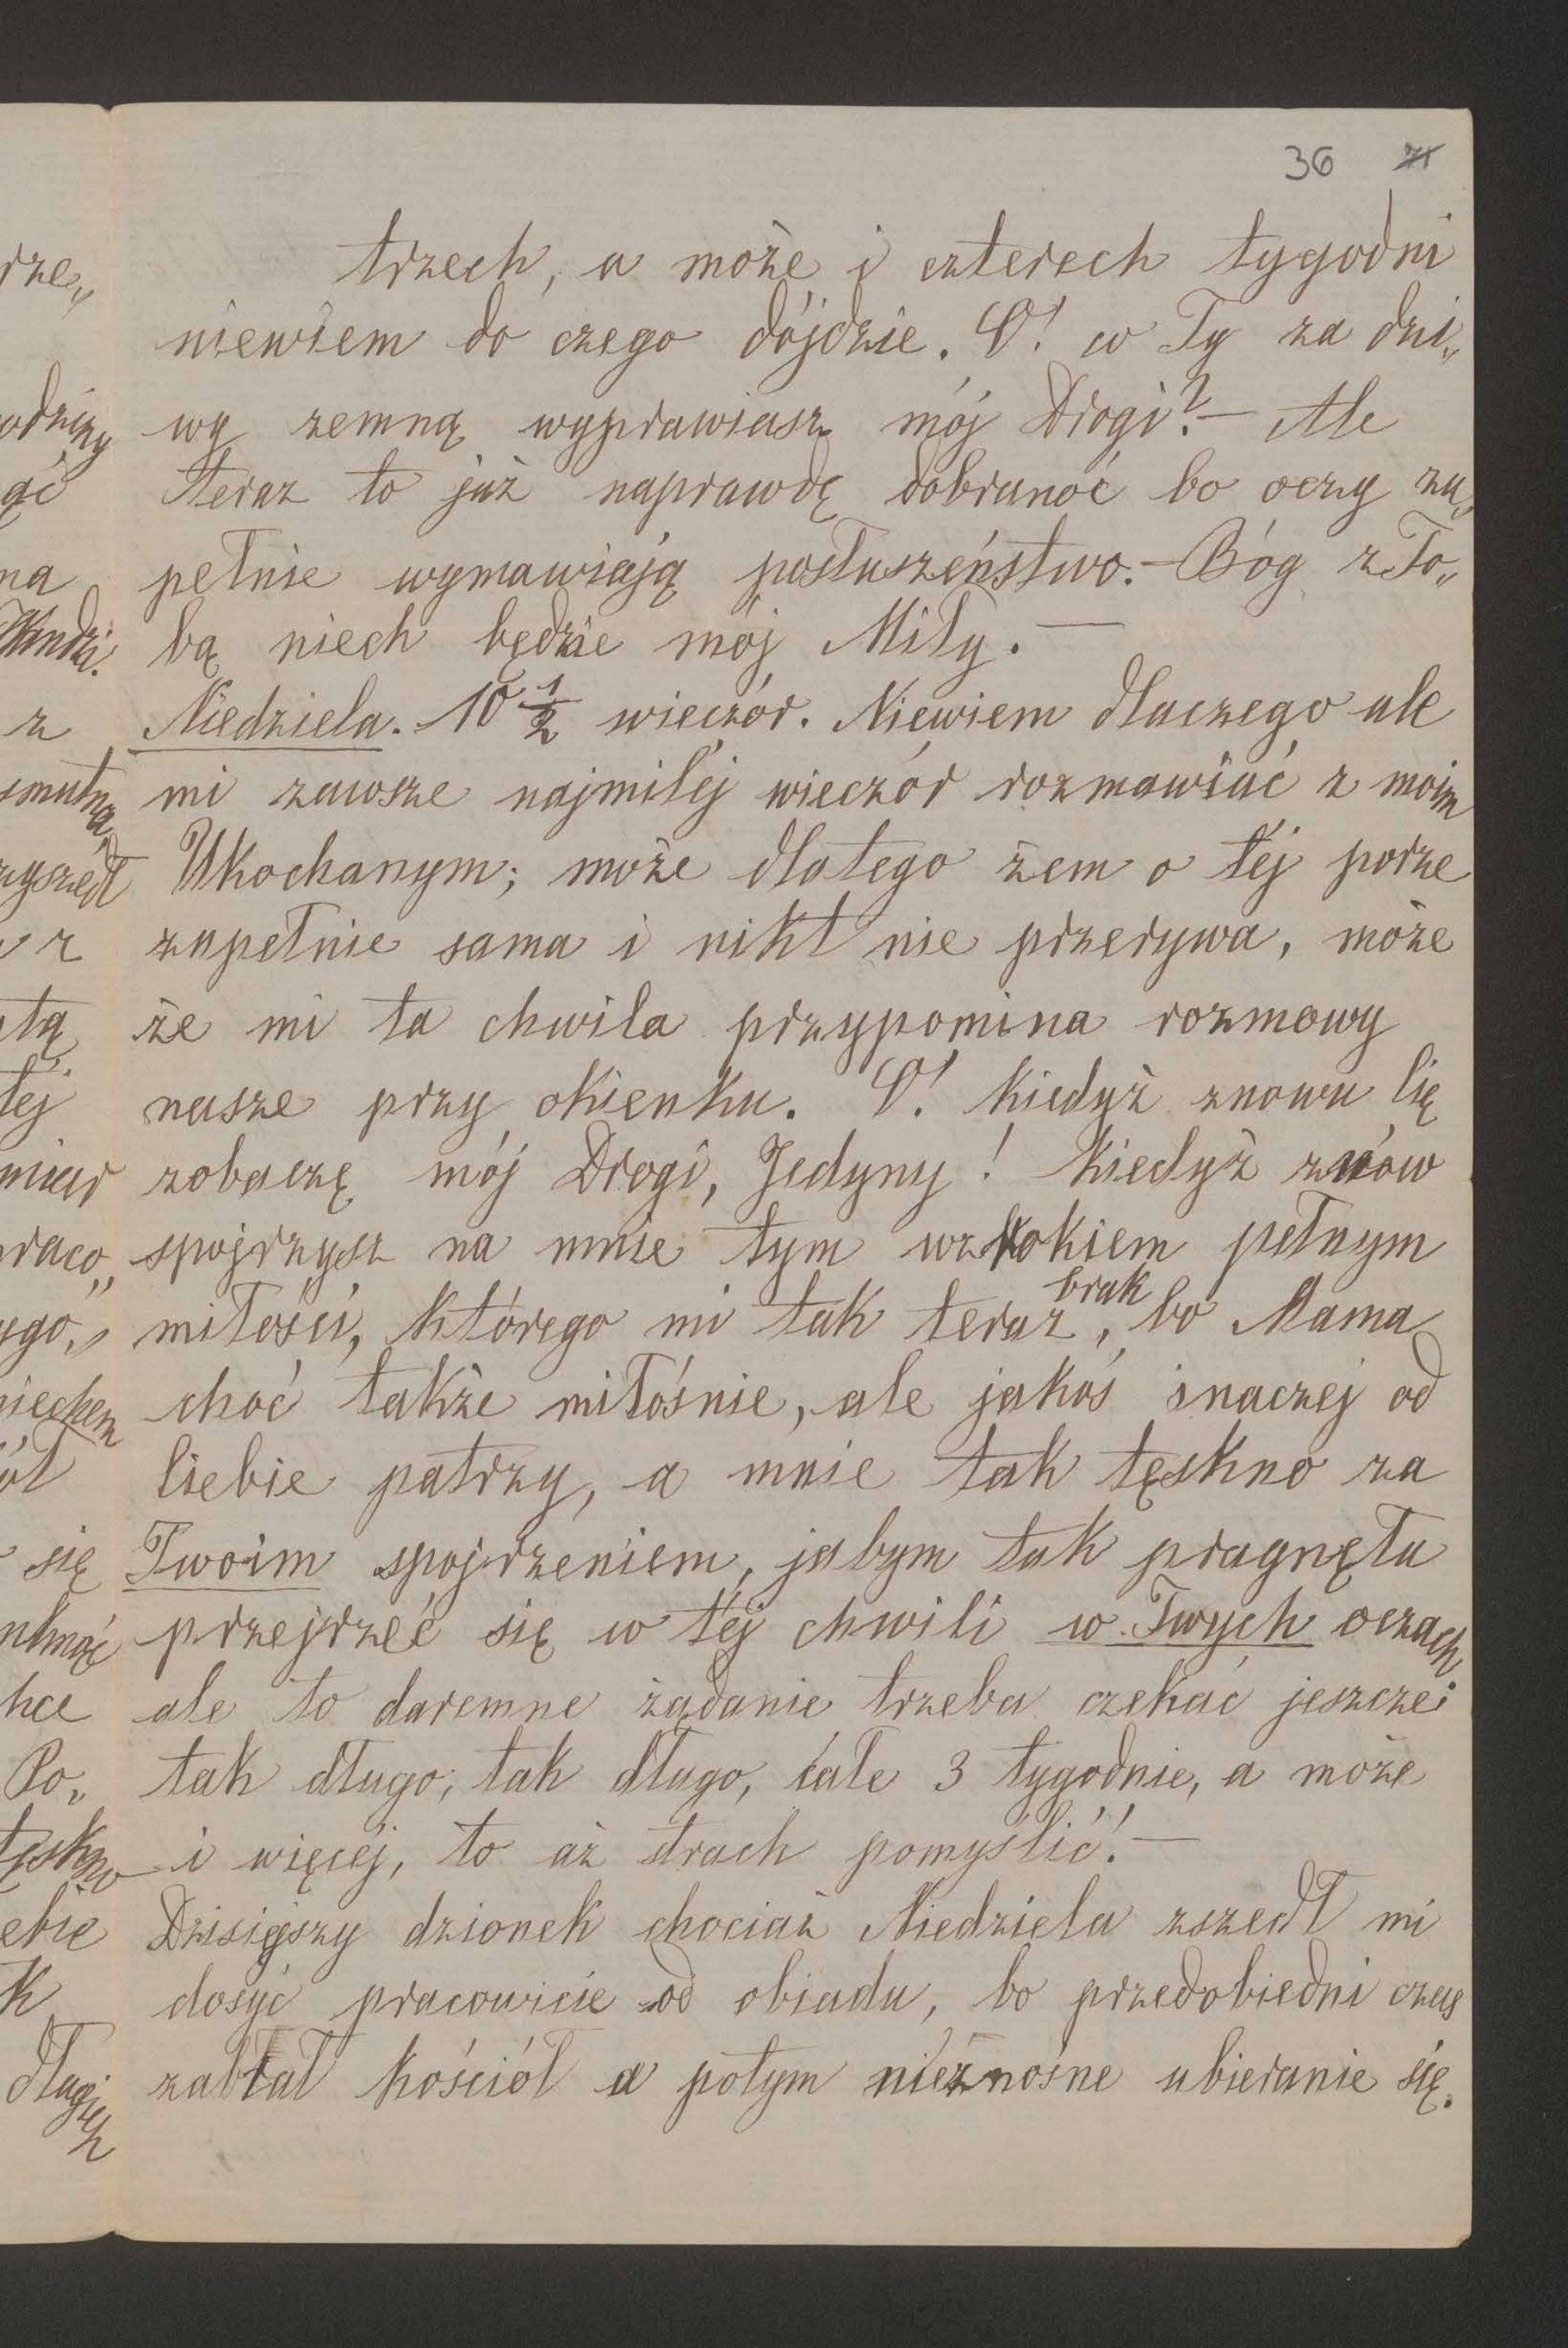 36 71
trzech, a może i czterech tygodni
niewiem do czego dójdzie. O! co Ty za dzi„
wy zemną wyprawiasz mój Drogi? — Ale
teraz to już naprawdę dobranoć bo oczy zu„
pełnie wymawiają posłuszeństwo. — Bóg z To„
bą niech będzie mój Miły. —
Niedziela. 10 1/2 wieczór. Niewiem dlaczego ale
mi zawsze najmiléj wieczór rozmawiać z moim
Ukochanym; może dlatego żem o téj porze
zupełnie sama i nikt nie przerywa, może
że mi ta chwila przypomina rozmowy
nasze przy okienku. O! kiedyż znowu Cię
zobaczę mój Drogi, Jedyny! kiedyż znów
spojrzysz na mnie tym wzrokiem pełnym
miłości, którego mi tak teraz brak, bo Mama
choć także miłośnie, ale jakoś inaczej od
Ciebie patrzy, a mnie tak tęskno za
Twoim spojrzeniem, jabym tak pragnęła
przejrzeć się w téj chwili w Twych oczach
ale to daremne żądanie trzeba czekać jeszcze
tak długo, tak długo, całe 3 tygodnie, a może
i więcéj, to aż strach pomyślić! —
Dzisiejszy dzionek chociaż Niedziela zszedł mi
dosyć pracowicie od obiadu, bo przedobiedni czas
zabrał kościół a potym nieznośne ubieranie się.
rze„
odziny
ąć
na
z
smutna,
zyszedł
z
tą
téj
miar
praco„
ego„
się
hce
Po„
tęskno
ebie
k
długich